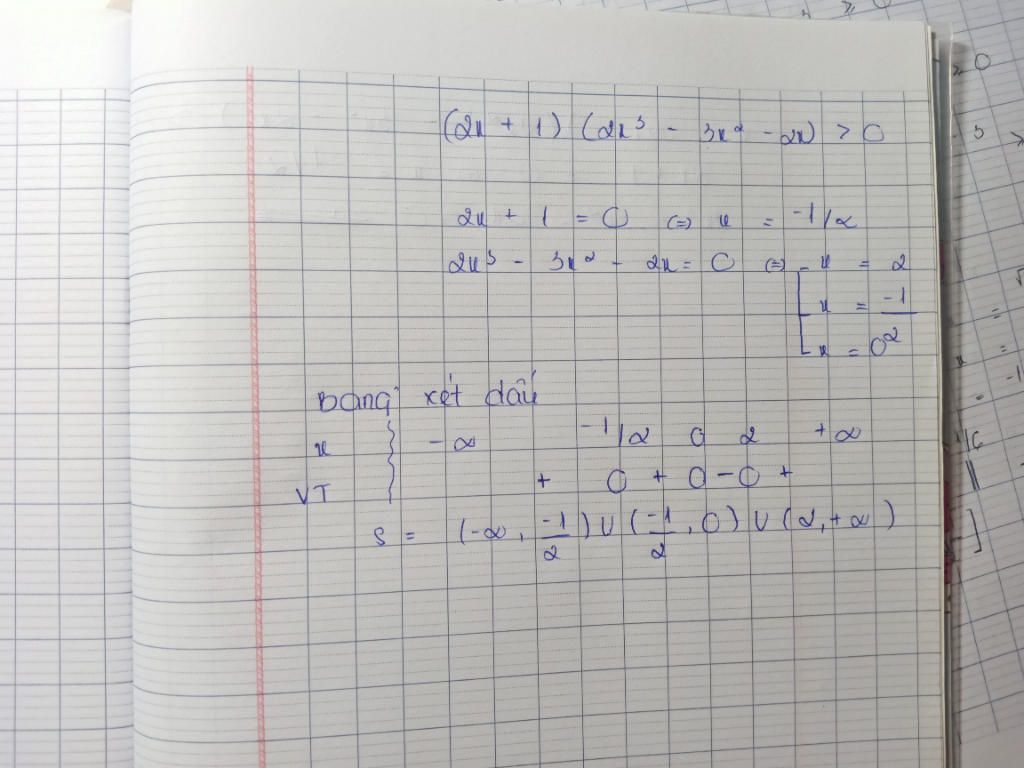 (2x + 1) (2x³ - 3x² - 2x) > 0
2x + 1 = 0 (=) x = -1/2
2x³ - 3x² - 2x = 0 (=) [ x = 2
x = -1/2
x = 0
Bảng xét dấu
x -∞ -1/2 0 2 +∞
VT + 0 + 0 - 0 +
S = (-∞, -1/2) ∪ (-1/2, 0) ∪ (2, +∞)